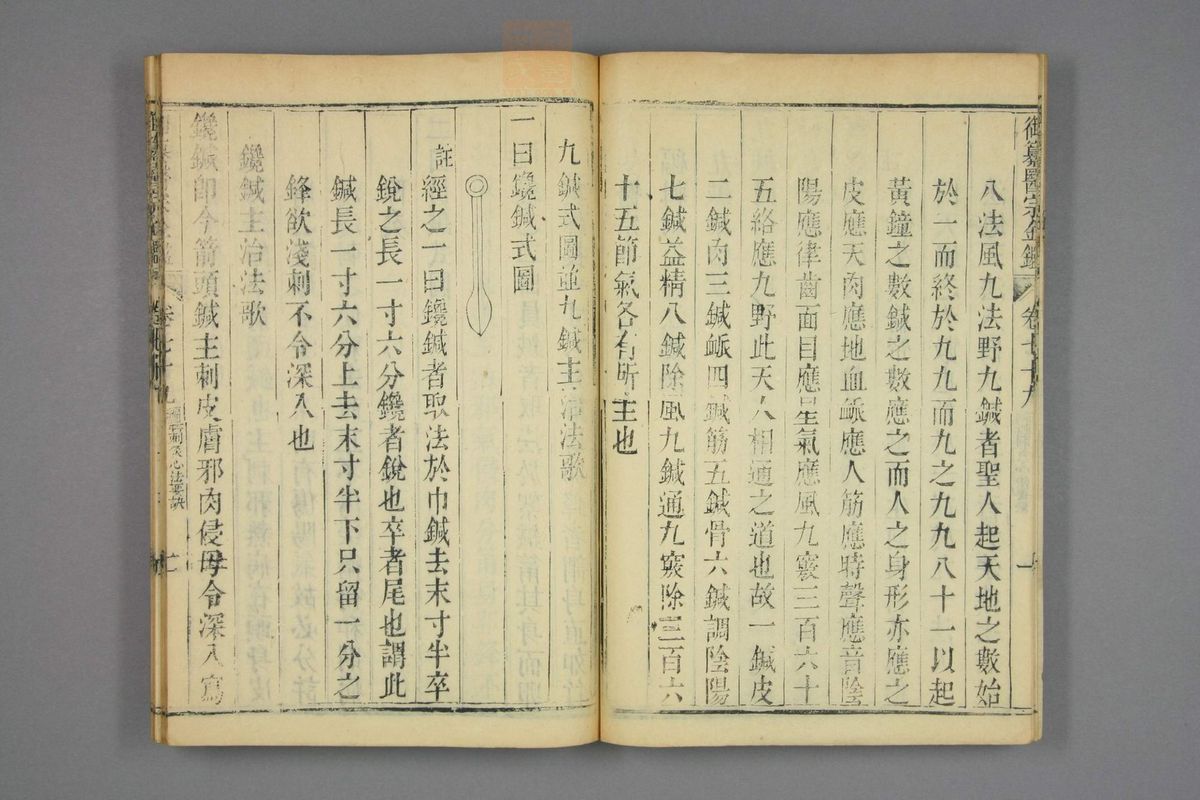 御纂醫宗金鑑 卷七十九 一
八法風九法野九鍼者聖人起天地之數始
於一而終於九九而九之九九八十一以起
黃鐘之數鍼之數應之而人之身形亦應之
皮應天肉應地血脈應人筋應時聲應音陰
陽應律齒面目應星氣應風九竅三百六十
五絡應九野此天人相通之道也故一鍼皮
二鍼肉三鍼脈四鍼筋五鍼骨六鍼調陰陽
七鍼益精八鍼除風九鍼通九竅除三百六
十五節氣各有所主也
九鍼式圖並九鍼主治法歌
一曰鑱鍼式圖
註經之一曰鑱鍼者取法於巾鍼去末寸半卒
銳之長一寸六分鑱者銳也卒者尾也謂此
鍼長一寸六分上去末寸半下只留一分之
鋒欲淺刺不令深入也
鑱鍼主治法歌
鑱鍼即今箭頭鍼主刺皮膚邪肉侵毋令深入寫
卷七十九 刺灸心法要訣 七